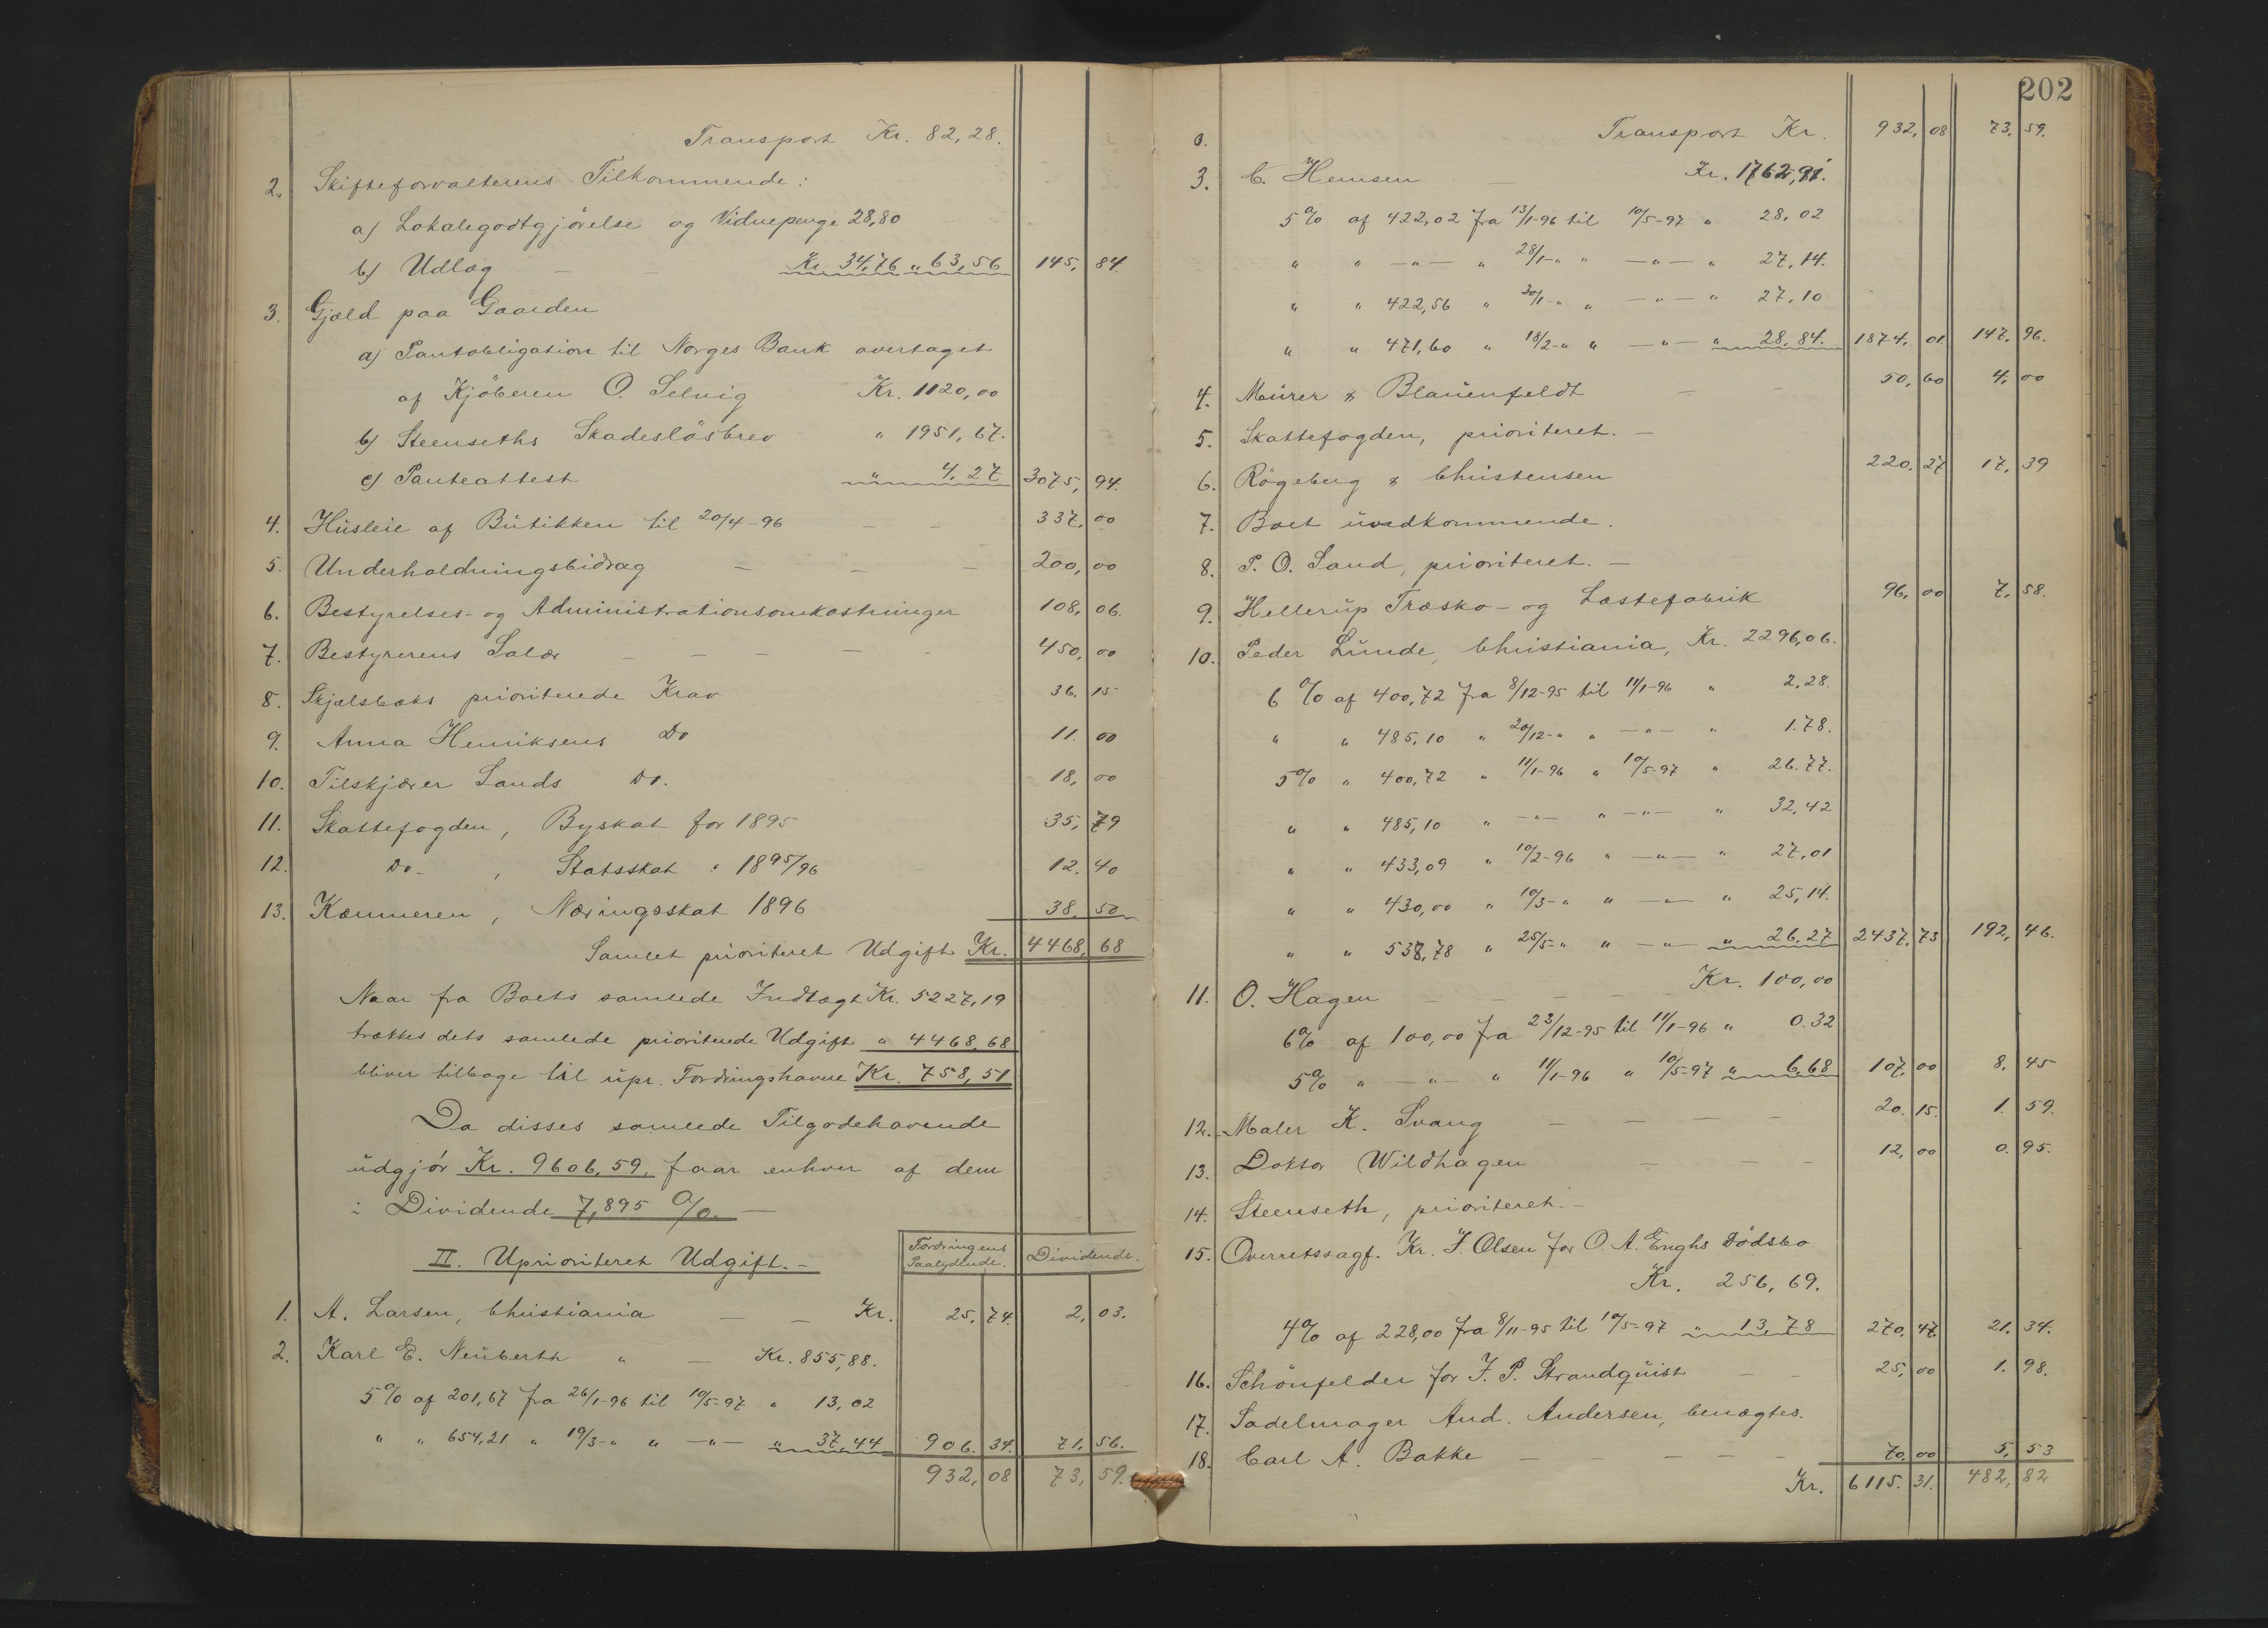 Transport Kr. 82,28.
2. Skifteforvalterens Tilkommende:
a) Lokalegodtgjörelse og Vidnepenge 28,80
b) Udlæg — — Kr. 34,76 " 63,56 145, 84.
3. Gjæld paa Gaarden
a) Pantobligation til Norges Bank overtaget
af Kjöberen O. Selvig Kr. 1120,00
b) Steenseths Skadeslösbrev " 1951,67.
c) Panteattest " 4.27 3075, 94.
4. Husleie af Butikken til 20/4-96 — — 337, 00
5. Underholdningsbidrag — — — 200, 00
6. Bestyrelses- og Administrationsomkostninger 108, 06.
7. Bestyrerens Salær — — — — - 450, 00
8. Skjælsbæks prioriterede Krav 36. 15
9. Anna Henriksens Do 11. 00
10. Tilskjærer Sands Do. 18, 00
11. Skattefogden, Byskat for 1895 35, 79
12. Do - , Statsskat " 1895/96 12. 40
13. Kæmneren, Næringsskat 1896 38. 50
Samlet prioriteret Udgift Kr. 4468, 68
Naar fra Boets samlede Indtægt Kr. 5227,19
trækkes dets samlede prioriterede Udgift " 4468,68
bliver tilbage til upr. Fordringshavere Kr. 758,51
Da disses samlede Tilgodehavende
udgjör Kr. 9606,59, faar enhver af dem
i Dividende 7,895 %. —
II. Uprioriteret Udgift. - Fordringens Paalydende. Dividende.
1. A. Larsen, Christiania — — Kr. 25, 74. 2, 03.
2. Karl E. Neuberth " — Kr. 855,88.
5% af 201,67 fra 26/1-96 til 10/5-97 " 13,02
" " 654,21 " 19/3-" " —"— " 37,44 906. 34. 71, 56.
932, 08 73, 59.
202
Transport Kr. 932, 08 73, 59.
3. C. Hemsen — Kr. 1762,91.
5% af 422,02 fra 13/1-96 til 10/5-97 " 28,02
" " —"— " 28/1-" " —"— " 27,14.
" " 422,56 " 30/1-" " —"— " 27,10
" " 471,60 " 18/2-" " —"— " 28,84. 1874, 01. 147, 96.
4. Meurer & Blauenfeldt — - 50, 60 4, 00
5. Skattefogden, prioriteret. —
6. Rögeberg & Christensen 220. 27 17, 39
7. Boet uvedkommende.
8. P. O. Sand, prioriteret. —
9. Hellerup Træsko- og Læstefabrik 96, 00 7, 58.
10. Peder Lunde, Christiania, Kr. 2296,06.
6% af 400,72 fra 8/12-95 til 11/1-96 " 2.28.
" " 485,10 " 20/12-" " —"— " 1.78.
5% " 400,72 " 11/1-96 " 10/5-97 " 26.77.
" " 485,10 " —"— " —"— " 32,42
" " 433,09 " 10/2-96 " —"— " 27,01
" " 430,00 " 10/3-" " —"— " 25,14.
" " 538,78 " 25/5-" " —"— " 26.27 2437, 73 192, 46.
11. O. Hagen — — — — — Kr. 100,00
6% af 100,00 fra 23/12-95 til 11/1-96 " 0.32
5% " —"— " 11/1-96 " 10/5-97 " 6,68 107, 00 8, 45
12. Maler K. Svang — — - 20. 15. 1. 59.
13. Doktor Wildhagen — — - 12, 00 0. 95.
14. Steenseth, prioriteret. -
15. Overretssagf. Kr. F. Olsen for O. A. Enghs Dödsbo
Kr. 256,69.
4% af 228,00 fra 8/11-95 til 10/5-97 " 13,78 270, 47. 21. 34.
16. Schönfelder for J. P. Strandquist — — 25, 00 1. 98.
17. Sadelmager And. Andersen, benægtes.
18. Carl A. Bakke — — — — - 70, 00 5, 53
Kr. 6115. 31. 482, 82